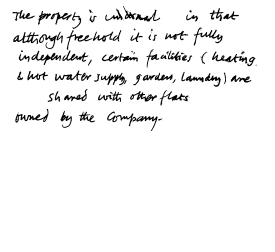 The property is unusual in that
although freehold it is not fully
independent, certain facilities (heating
& hot water supply, garden, laundry) are
shared with other flats
owned by the Company.